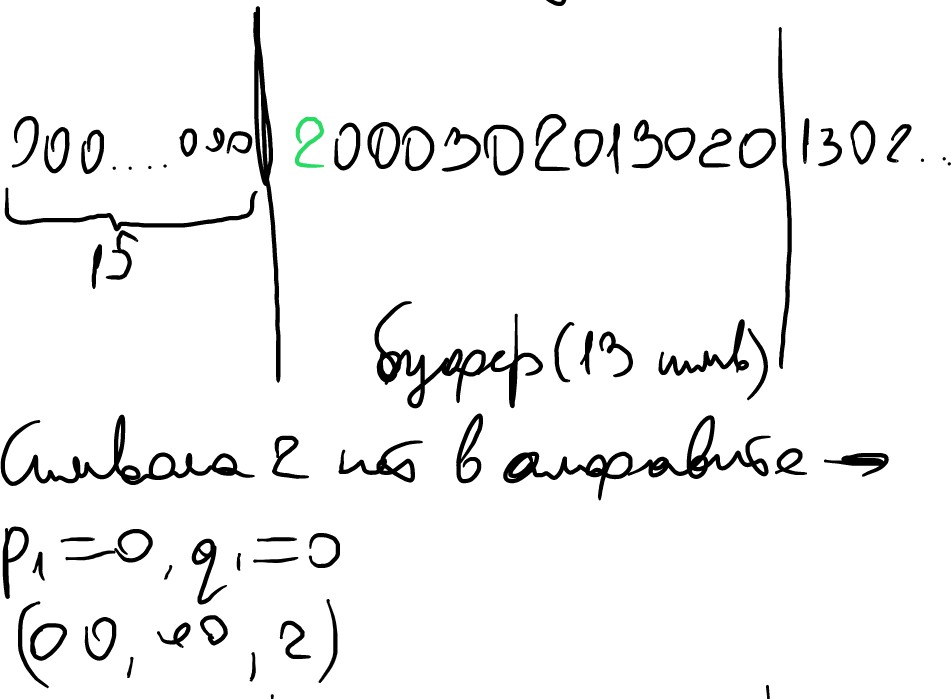 000....000 | 2000302013020 | 1302...
15
буфер (13 симв)
Символа 2 нет в алфавите →
p₁=0, q₁=0
(00, 00, 2)